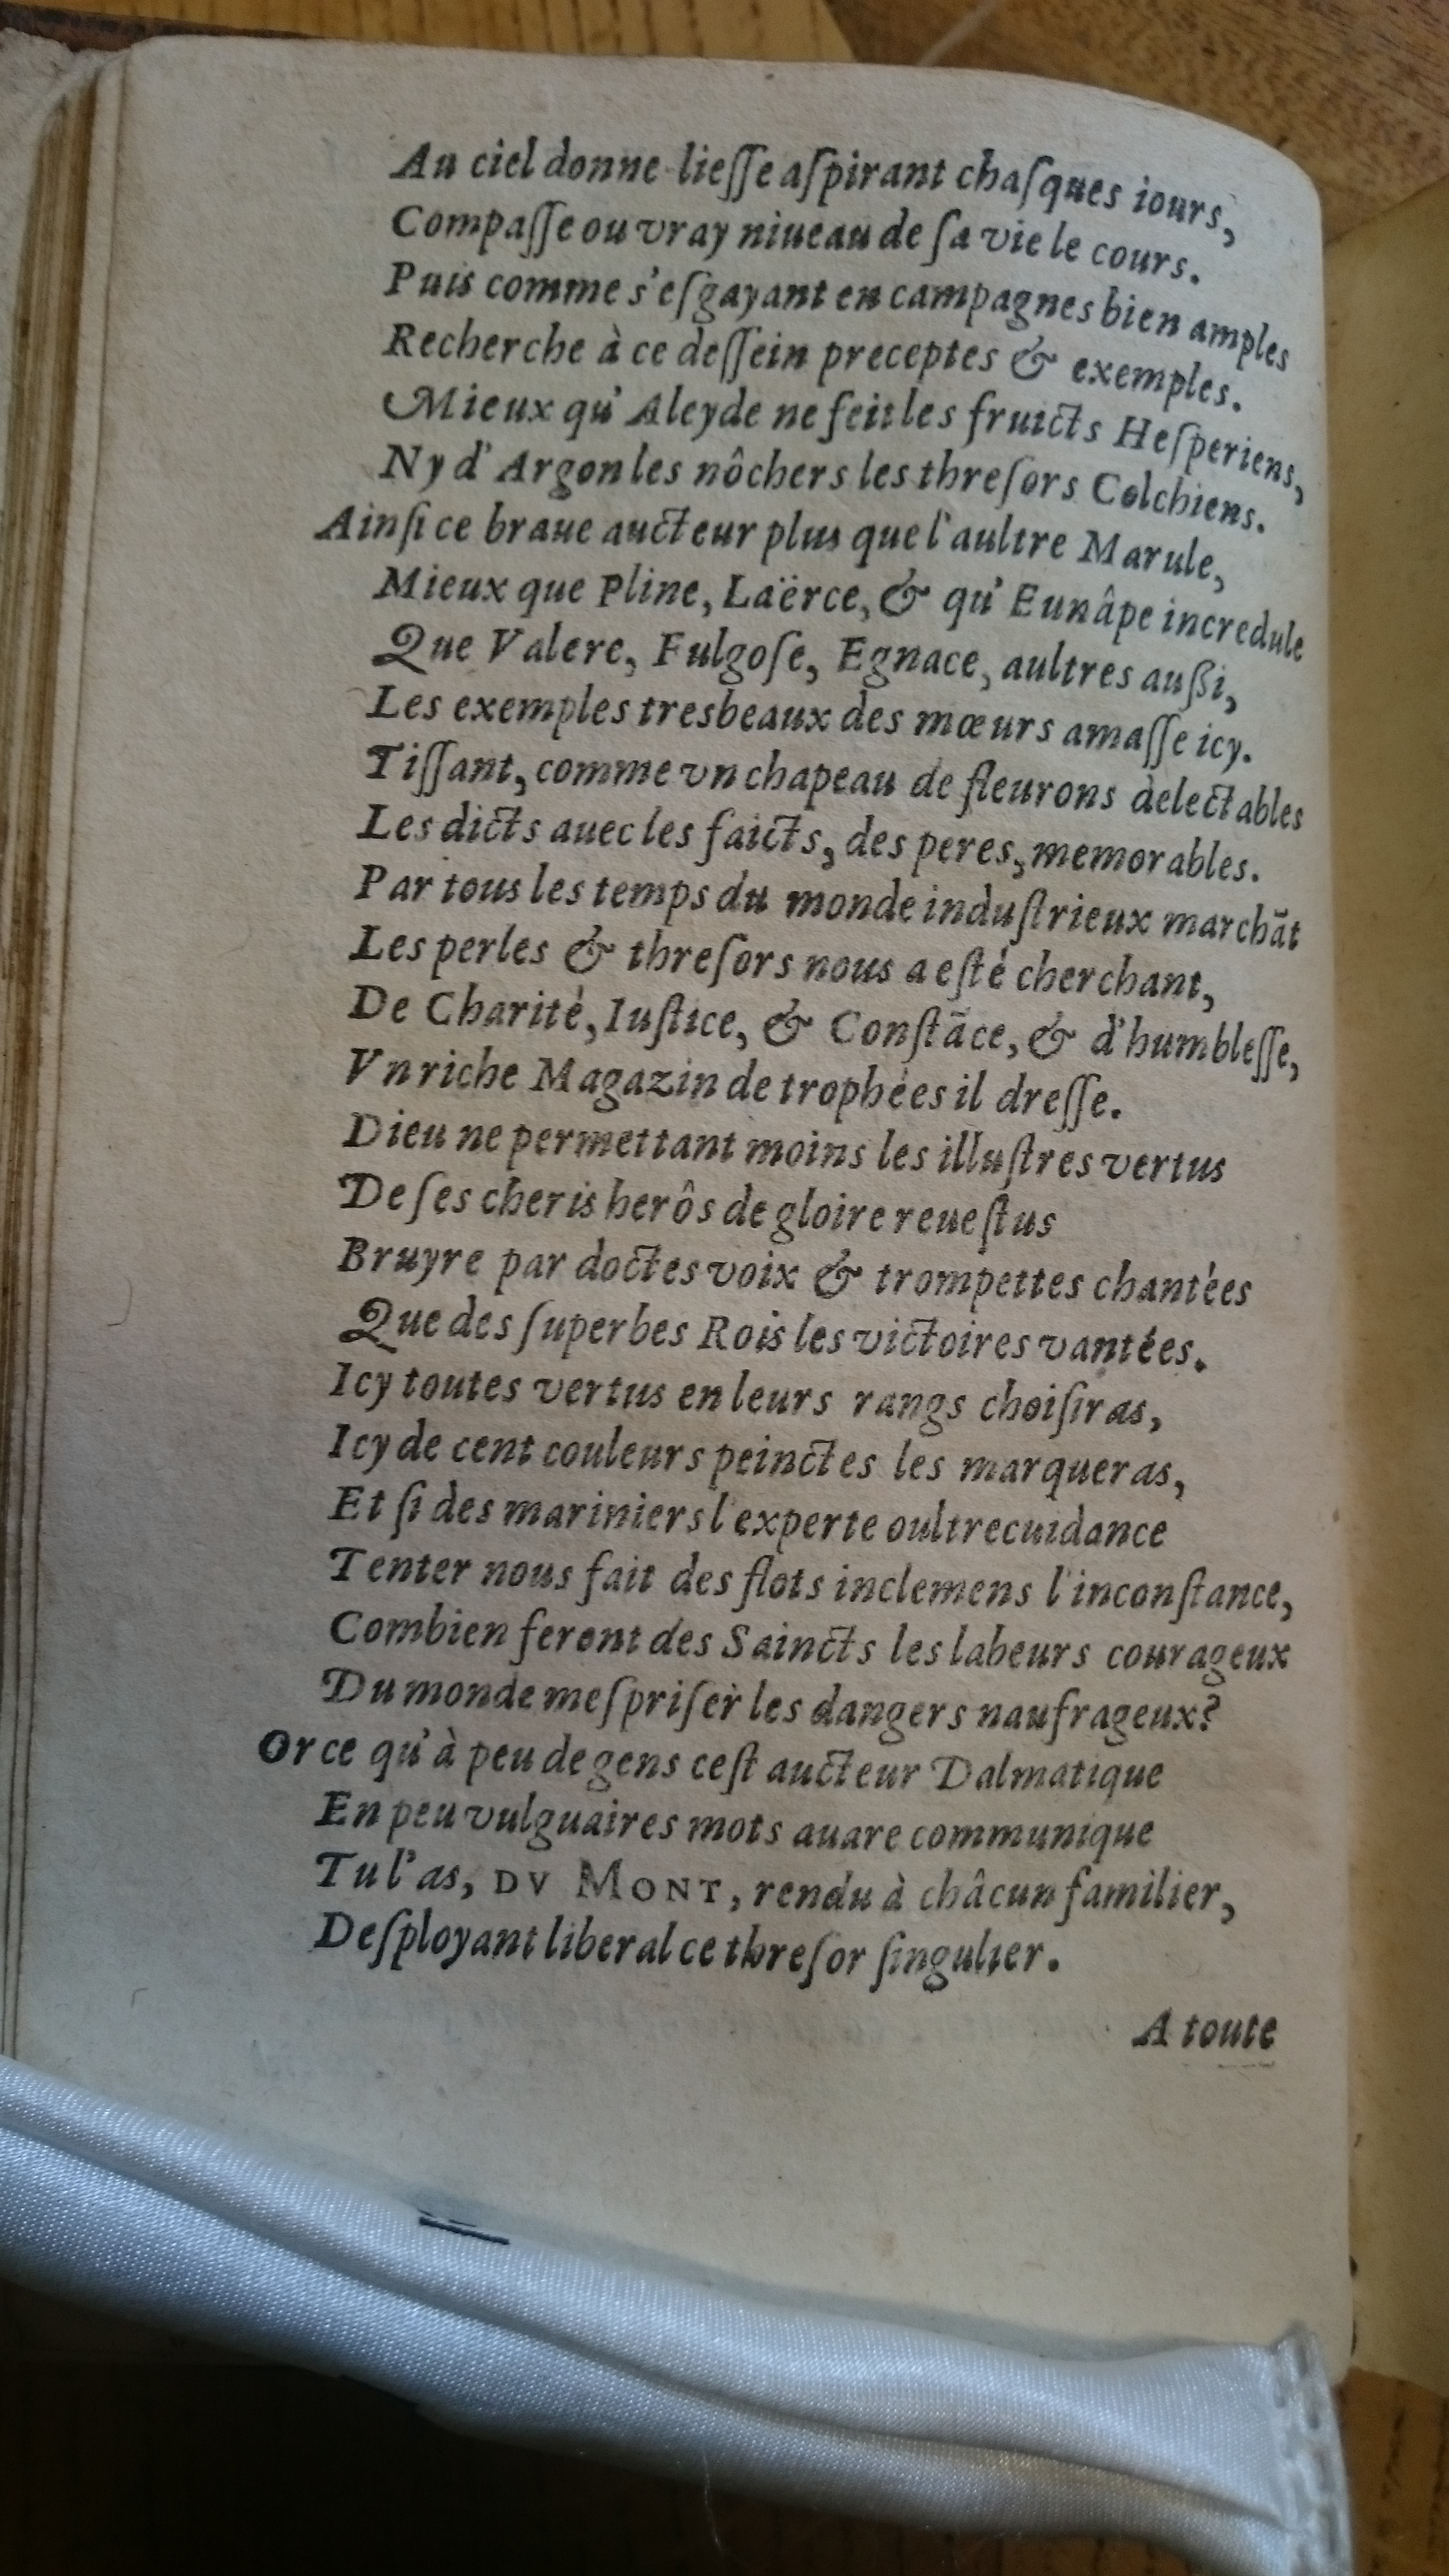 Au ciel donne lieſſe aſpirant chaſques iours,
Compaſſe ou vray niueau de ſa vie le cours.
Puis comme s'eſgayant en campagnes bien amples
Recherche à ce deſſein preceptes & exemples.
Mieux qu' Alcyde ne feit les fruicts Heſperiens,
Ny d' Argon les nôchers les threſors Colchiens.
Ainſi ce braue aucteur plus que l'aultre Marule,
Mieux que Pline, Laërce, & qu' Eunâpe incredule
Que Valere, Fulgoſe, Egnace, aultres außi,
Les exemples tresbeaux des mœurs amaſſe icy.
Tiſſant, comme vn chapeau de fleurons delectables
Les dicts auec les faicts, des peres, memorables.
Par tous les temps du monde induſtrieux marchãt
Les perles & threſors nous a eſté cherchant,
De Charité, Iuſtice, & Conſtãce, & d'humbleſſe,
Vn riche Magazin de trophées il dreſſe.
Dieu ne permettant moins les illuſtres vertus
De ſes cheris herôs de gloire reueſtus
Bruyre par doctes voix & trompettes chantées
Que des ſuperbes Rois les victoires vantées.
Icy toutes vertus en leurs rangs choiſiras,
Icy de cent couleurs peinctes les marqueras,
Et ſi des mariniers l'experte oultrecuidance
Tenter nous fait des flots inclemens l'inconſtance,
Combien feront des Saincts les labeurs courageux
Du monde meſpriſer les dangers naufrageux?
Or ce qu'à peu de gens ceſt aucteur Dalmatique
En peu vulguaires mots auare communique
Tu l'as, DV MONT, rendu à châcun familier,
Deſployant liberal ce threſor ſingulier.
A toute